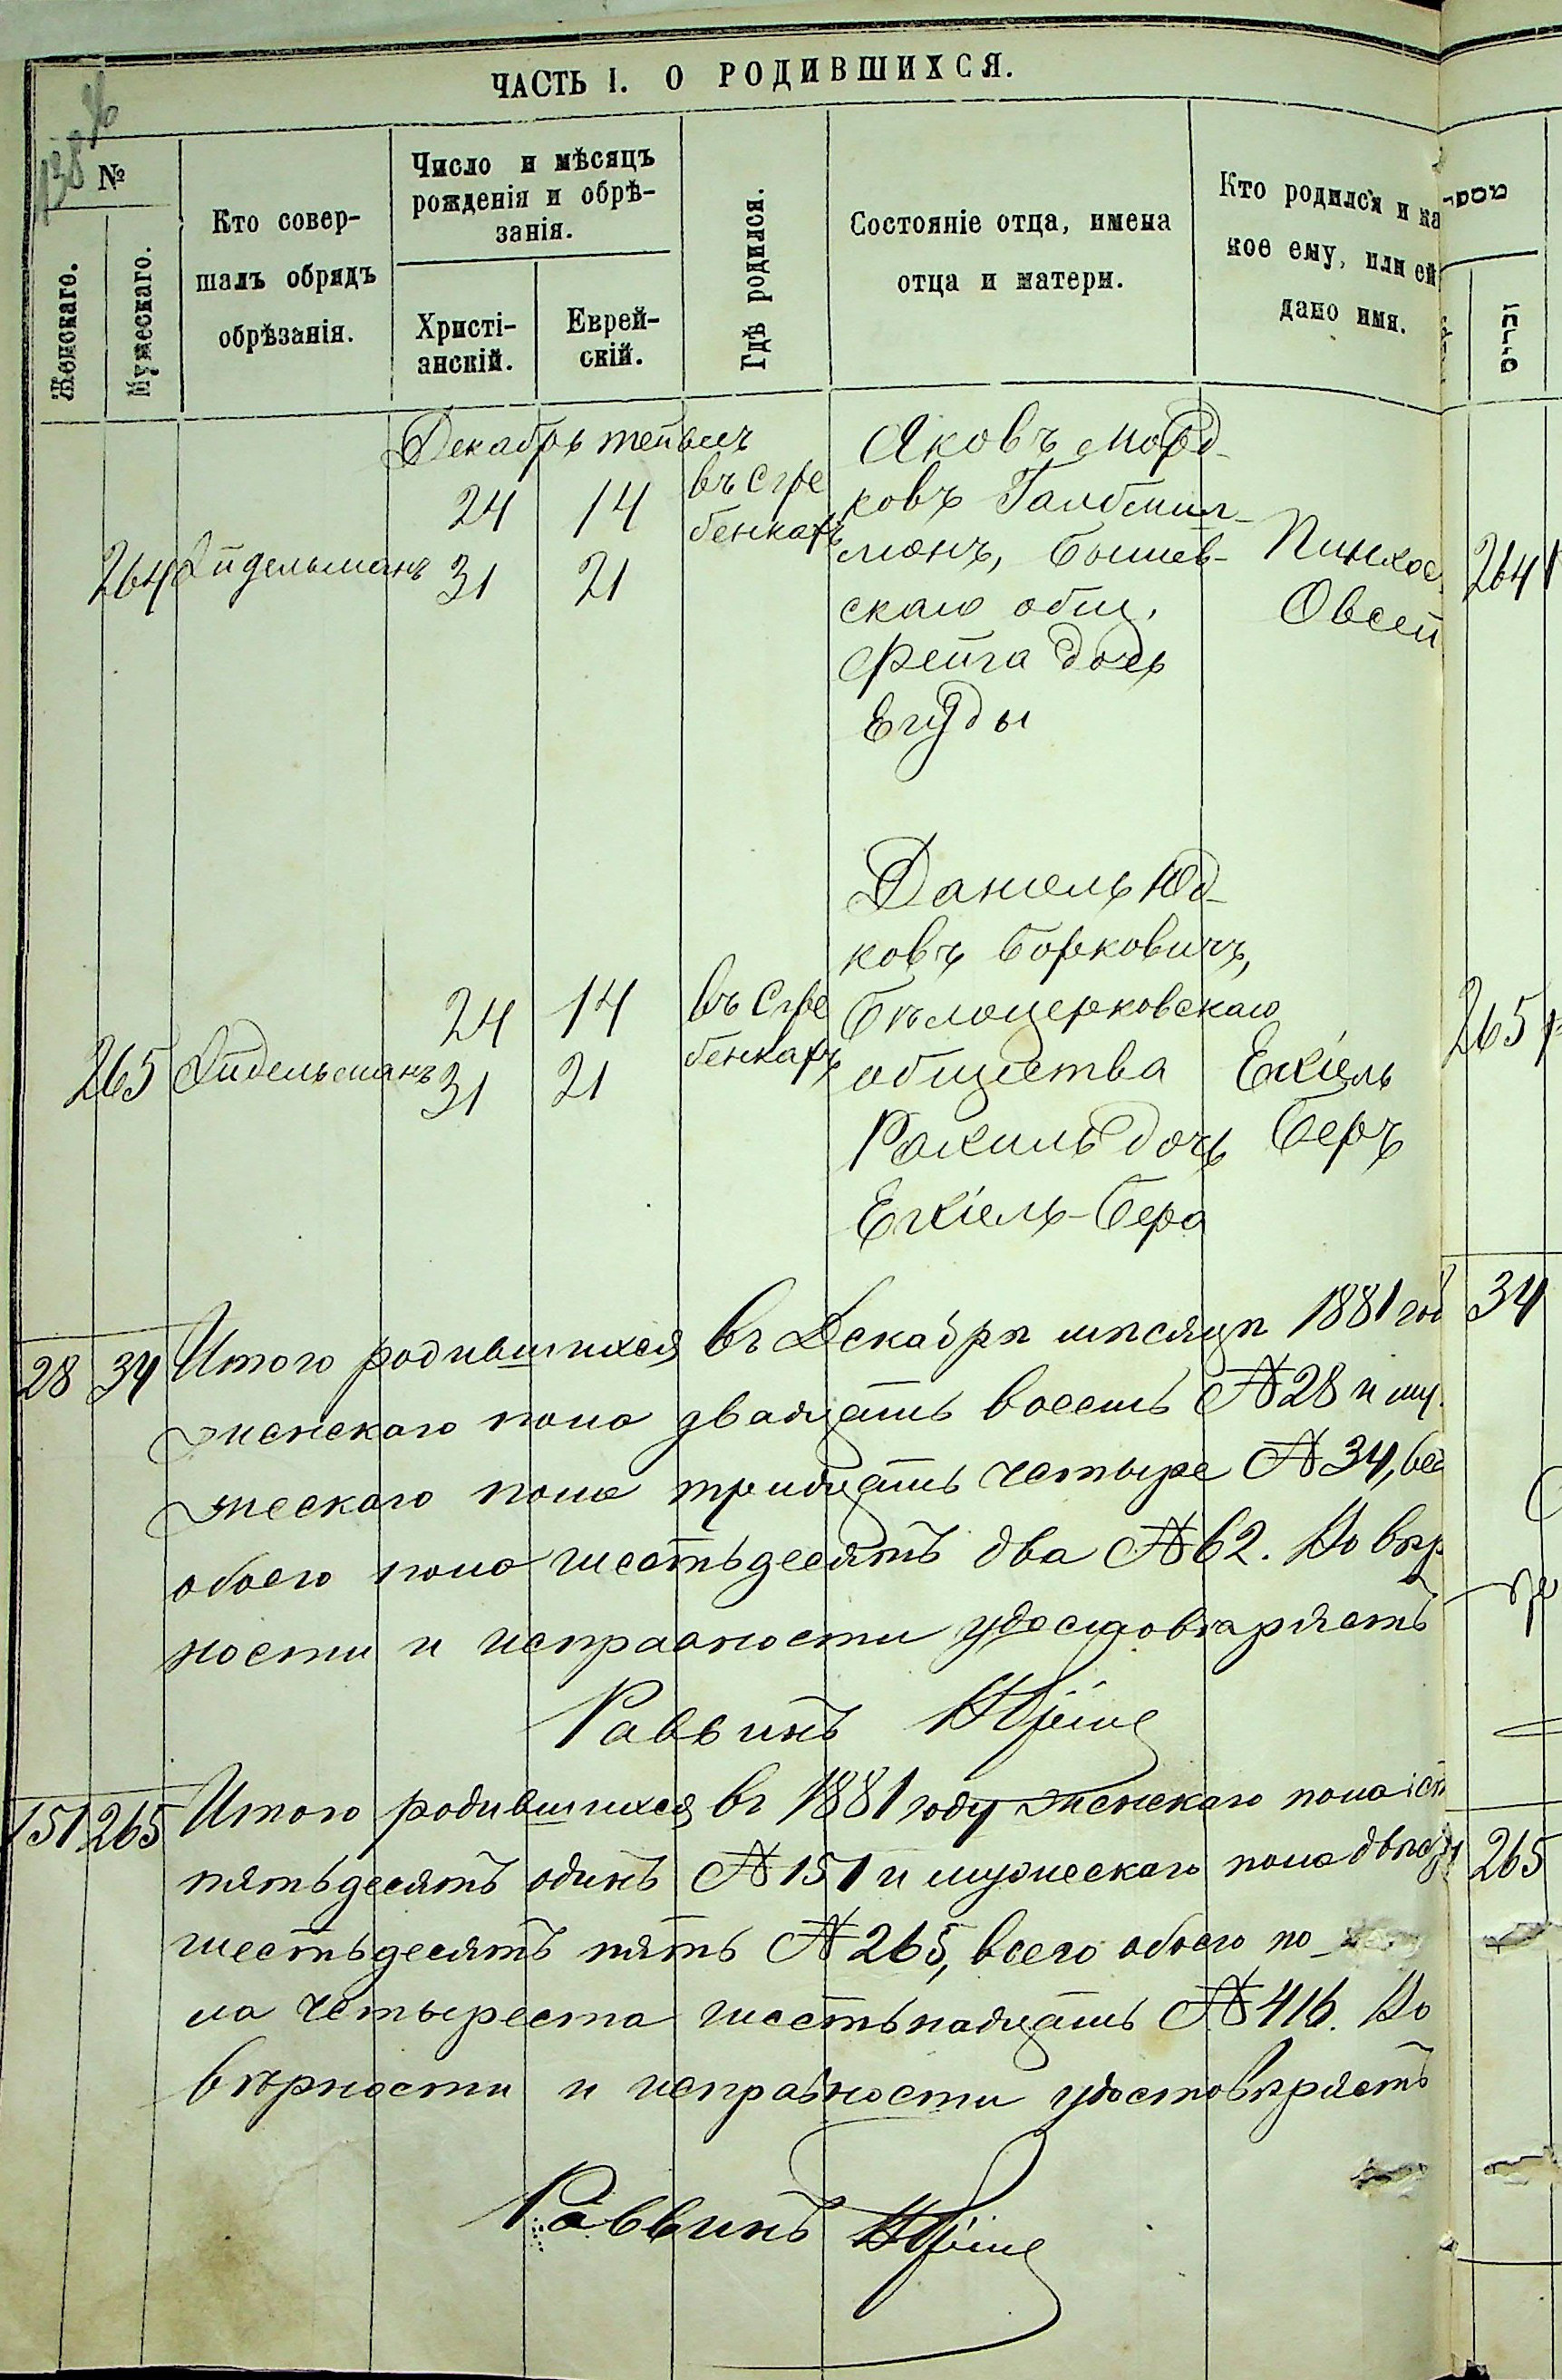 ЧАСТЬ I. О РОДИВШИХСЯ.
138
№
Женскаго.
Мужескаго.
Кто совер-
шалъ обрядъ
обрѣзанія.
Число и мѣсяцъ
рожденія и обрѣ-
занія.
Христі-
анскій.
Еврей-
скій.
Гдѣ родился.
Состояніе отца, имена
отца и матери.
Кто родился и ка
кое ему, или ей
дано имя.
Декабрь тейвесъ
264
Эйдельманъ
24 14
31 21
въ Стре
бенкахъ
Яковъ Морд-
ковъ
манъ,
скаго общ.
Фейга дочь
Егуды
Пинхос
Овсей
264
265
Эйдельманъ
24 14
31 21
въ Стре
бенкахъ
Даніель Юд-
ковъ Борковичъ,
Бѣлоцерковскаго
общества
Рахиль дочь
Ехіель-Бера
Ехіель
Беръ
265
28 34 Итого родившихся въ Декабрѣ мѣсяцѣ 1881 год
женскаго пола двадцать восемь № 28 и му
жескаго пола тридцать четыре № 34, все
обоего пола шестьдесятъ два № 62. Во вѣр
ности и исправности удостовѣряетъ
Раввинъ
34
151 265 Итого родившихся въ 1881 году женскаго пола ст
пятьдесятъ одинъ № 151 и мужескаго пола двѣс
шестьдесятъ пять № 265, всего обоего по-
ла четыреста шестьнадцать № 416. Во
вѣрности и исправности удостовѣряетъ
Раввинъ
265